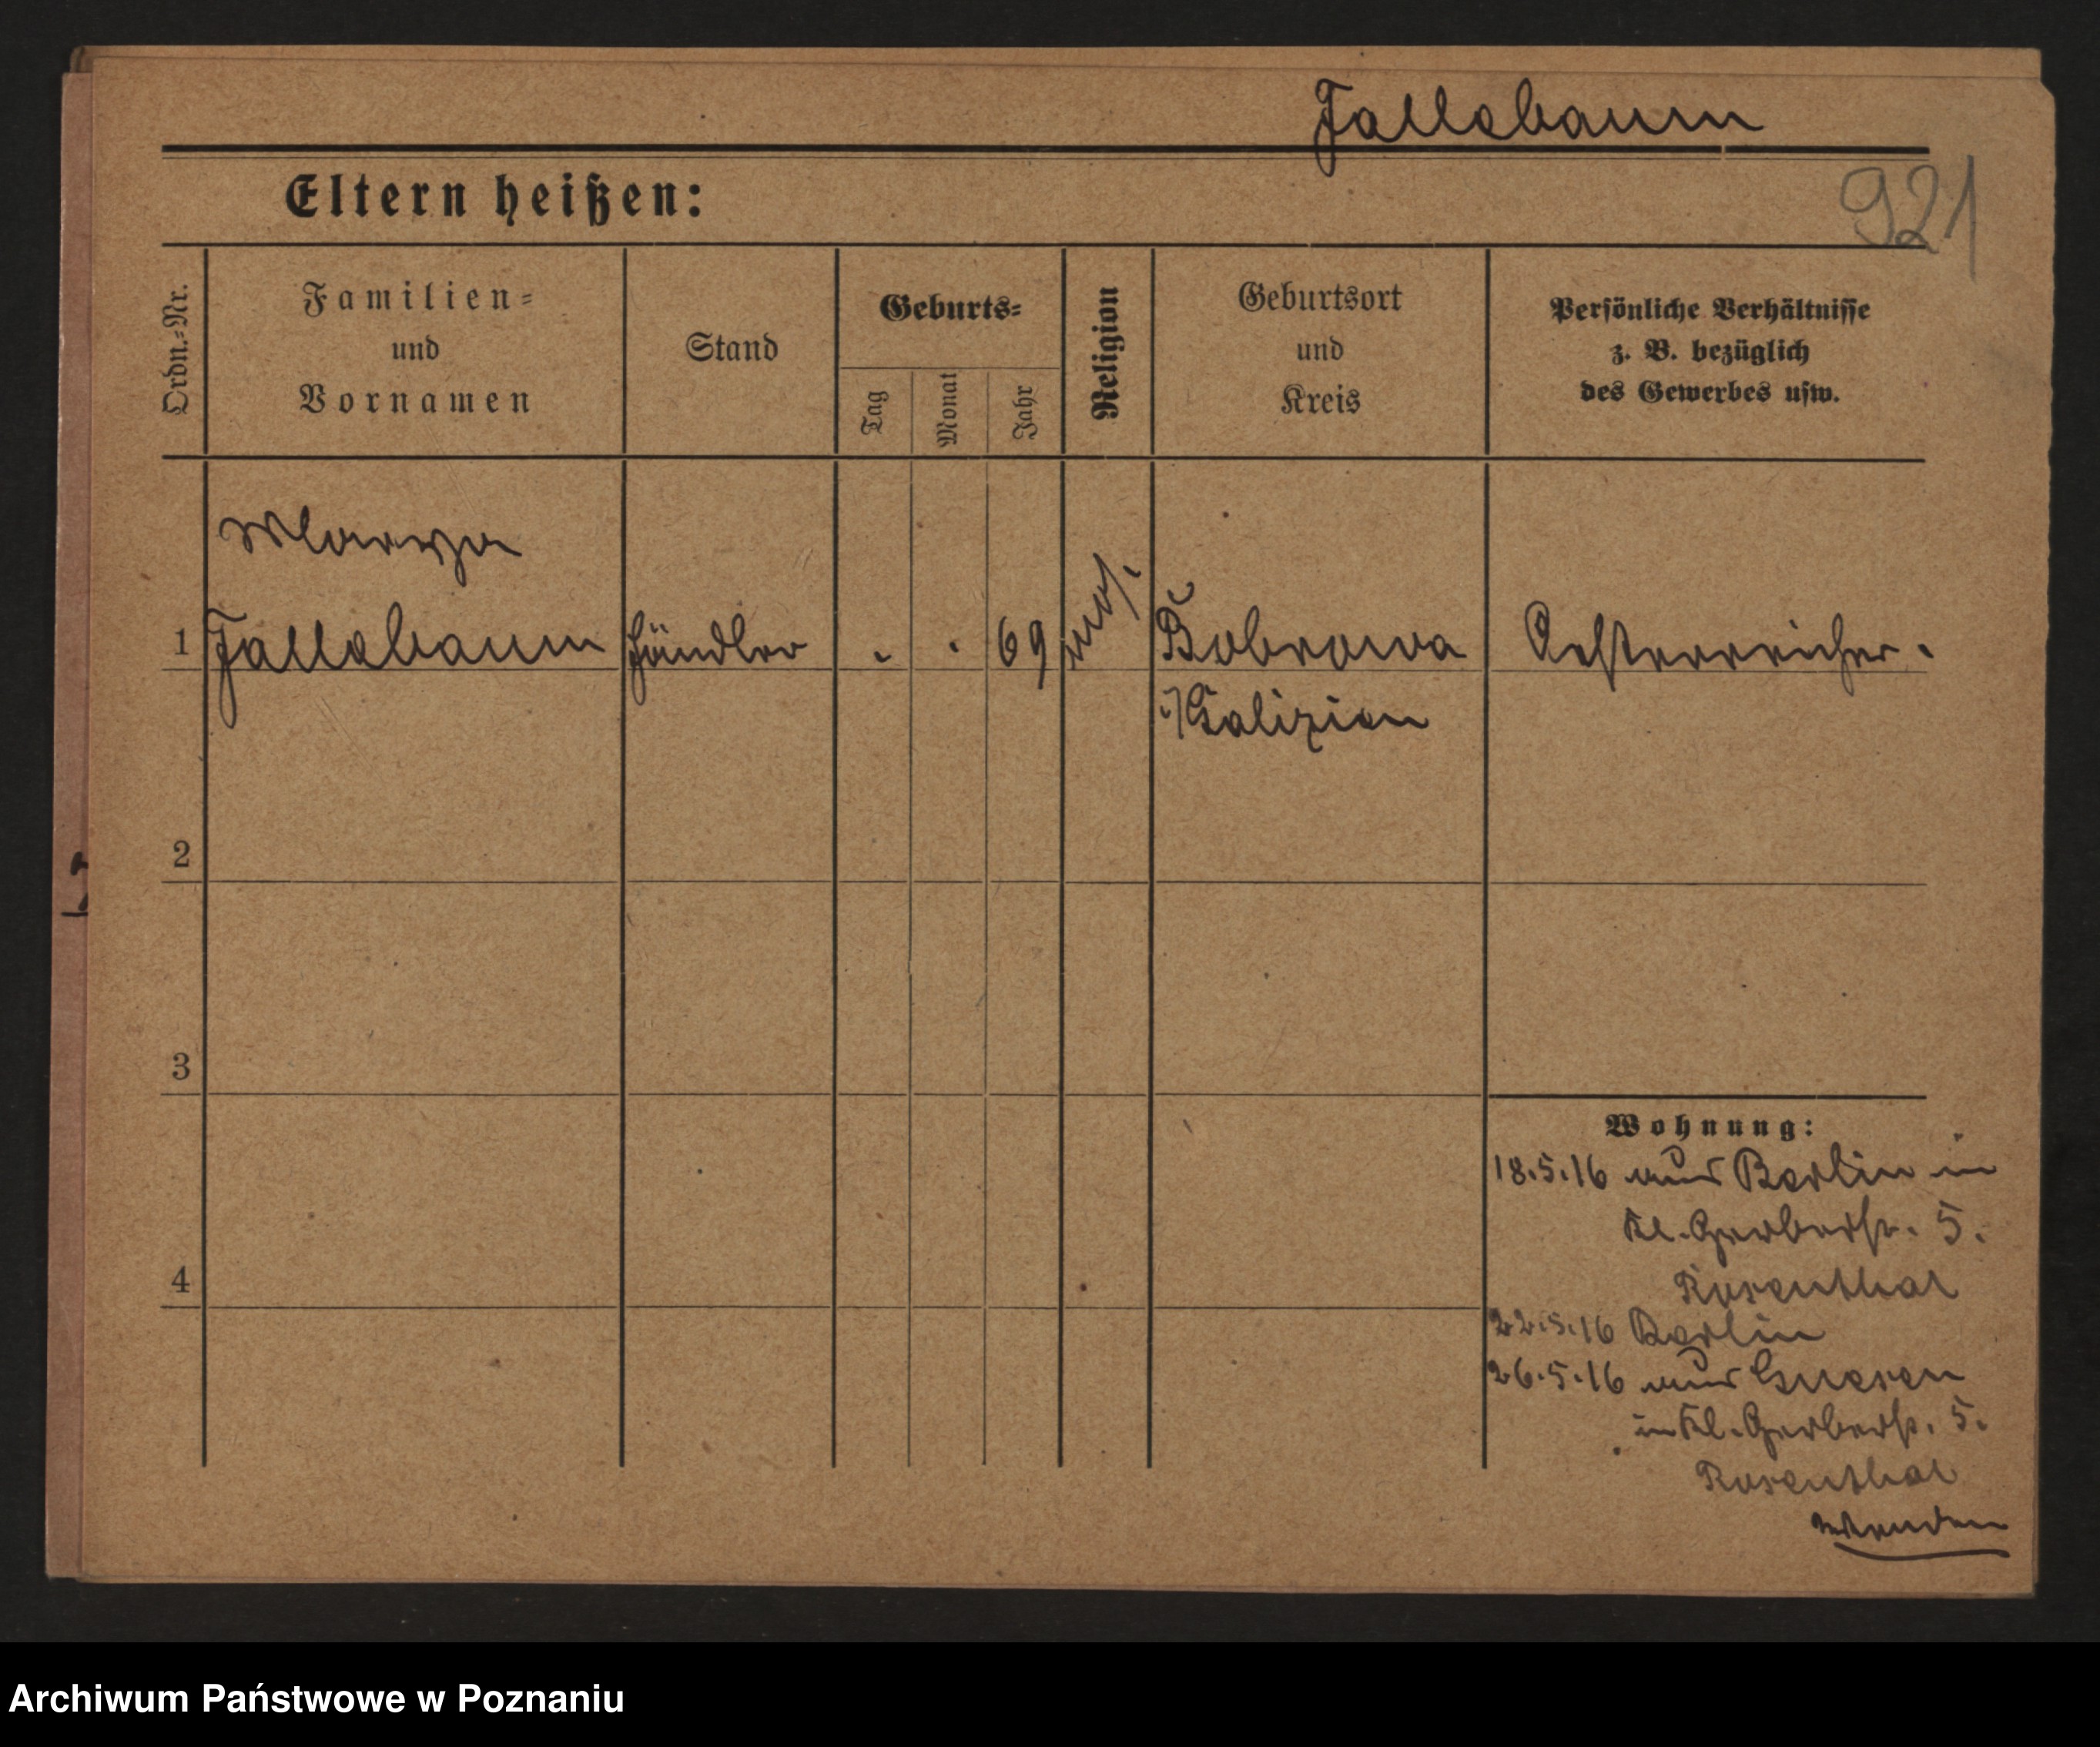 Fallebaum
921
Eltern heißen:
Ordn.-Nr.
Familien-
und
Vornamen
Stand
Geburts-
Tag
Monat
Jahr
Religion
Geburtsort
und
Kreis
Persönliche Verhältnisse
z. B. bezüglich
des Gewerbes usw.
1 Fallebaum Händler . . 69 mos. Bobrowa Oesterreicher.
i/Galizien
2
3
4
Wohnung:
18.5.16 aus Berlin in
Kl. Gerberstr. 5.
Rosenthal
22.5.16 Berlin
26.5.16 aus Gnesen
in Kl. Gerberstr. 5.
Rosenthal
wenden
Archiwum Państwowe w Poznaniu